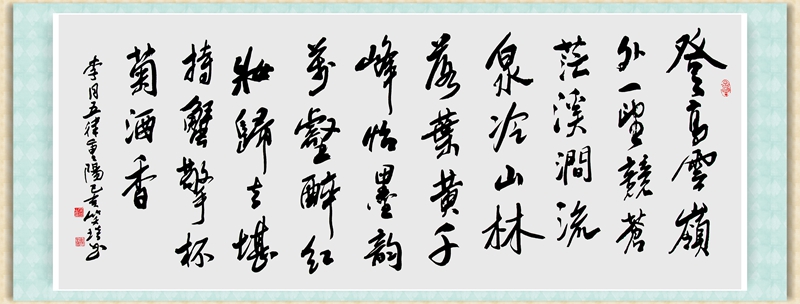 登高雲嶺
外一望競蒼
茫溪澗流
泉冷山林
落葉黄千
峰怡墨韵
萬壑醉紅
妝歸去堪
持蟹擎杯
菊酒香
李月五律重陽己亥